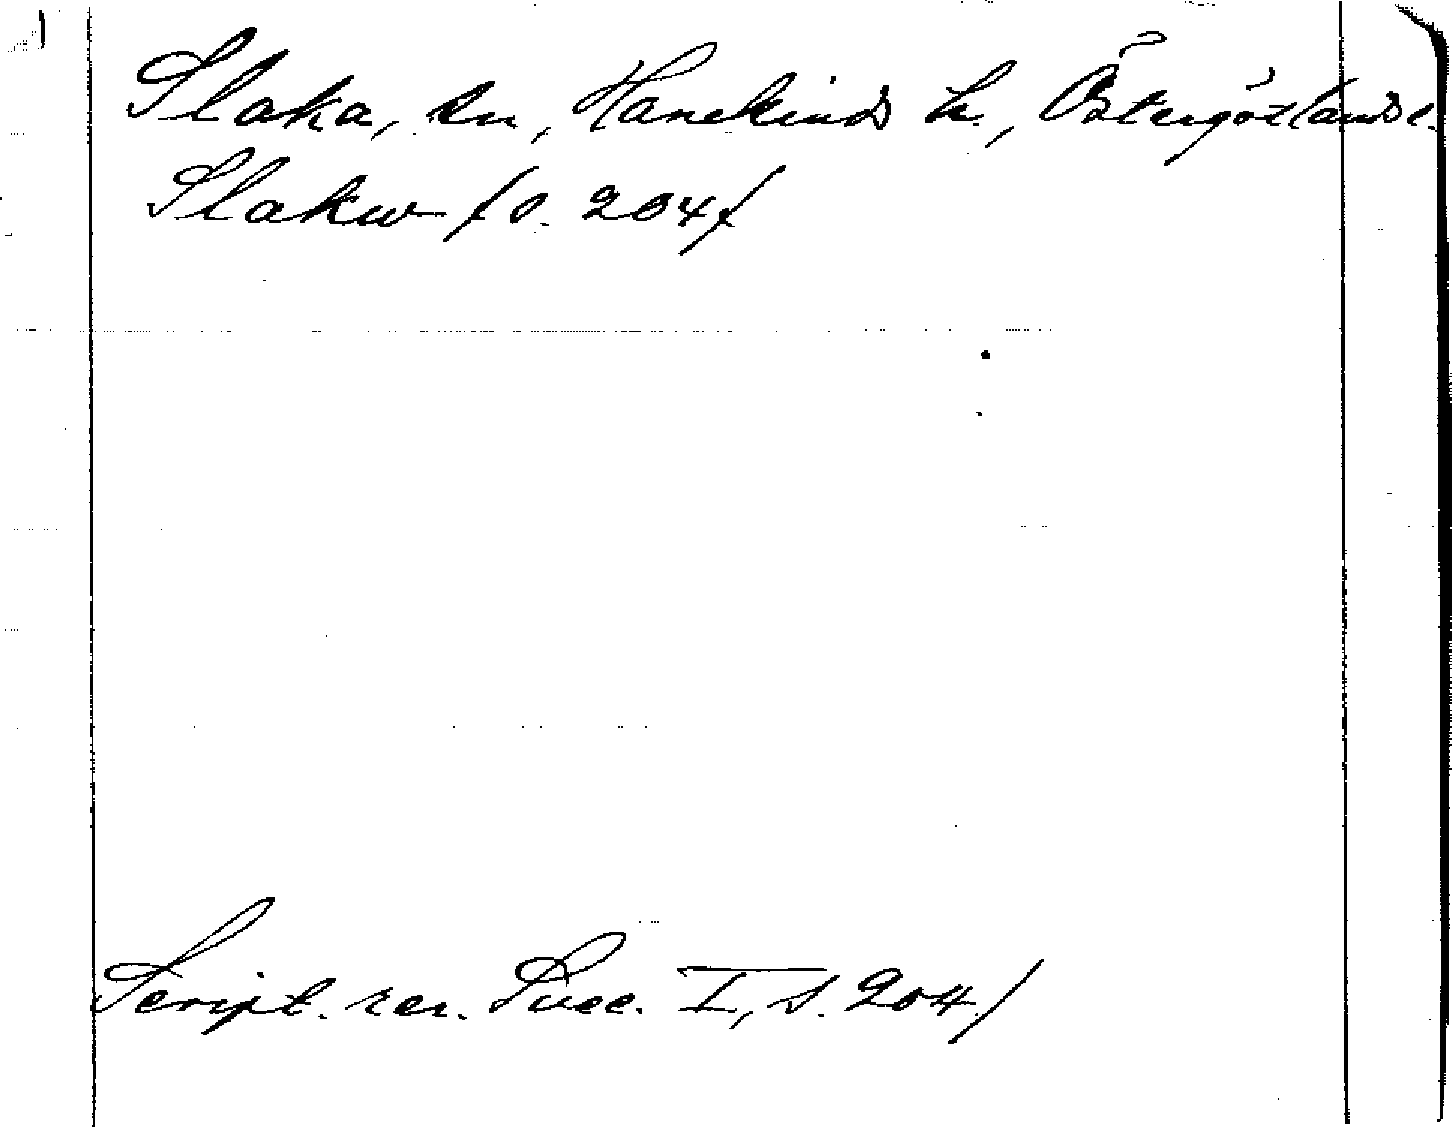 Slaka, sn, Hanekinds h., Östergötlands l.
Slakw /s. 204/
Script. rer. Suec. I, s. 204./